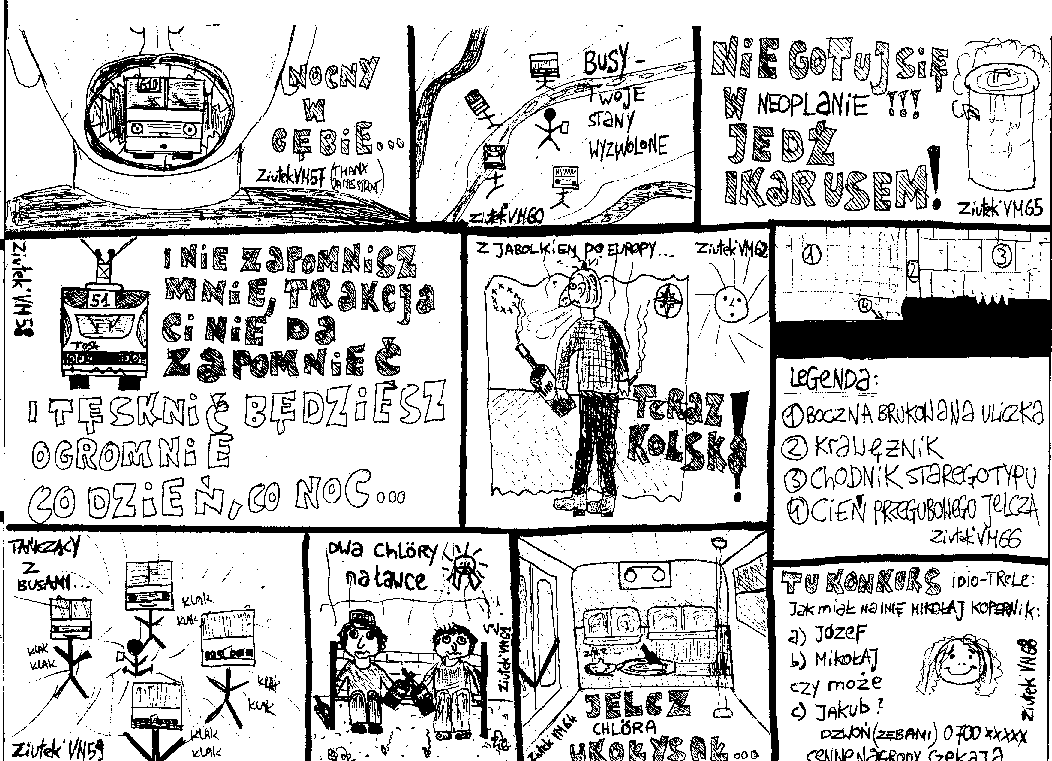 NOCNY
W
GĘBIE...
Ziutek VM57
THANX
BUSY -
TWOJE
STANY
WYZWOLONE
Ziutek VM60
NIE GOTUJ SIĘ
W NEOPLANIE !!!
JEDŹ
IKARUSEM!
Ziutek VM65
Ziutek VM58
51
I NIE ZAPOMNISZ
MNIE, TRAKCJA
CI NIE DA
ZAPOMNIEĆ
I TĘSKNIĆ BĘDZIESZ
OGROMNIE
CO DZIEŃ, CO NOC...
Z JABOLKIEM PO EUROPY...
Ziutek VM62
TERAZ
KOLSKO!
1
2
3
4
LEGENDA:
1 BOCZNA BRUKOWANA ULICZKA
2 KRAWĘŻNIK
3 CHODNIK STAREGO TYPU
4 CIEŃ PRZEGUBOWEGO JELCZA
Ziutek VM66
TAŃCZĄCY
Z
BUSAMI...
KLAK
KLAK
KLAK
KLAK
KLAK
KLAK
KLAK
KLAK
Ziutek VM59
DWA CHLÖRY
NA ŁAWCE
Ziutek VM61
JELCZ
CHLÖRA
UKOŁYSAŁ...
Ziutek VM64
TU KONKURS IDIO-TRELE:
JAK MIAŁ NA IMIĘ MIKOŁAJ KOPERNIK:
a) JÓZEF
b) MIKOŁAJ
CZY MOŻE
c) JAKUB?
DZWOŃ (ZĘBAMI) 0700 xxxxx
CENNE NAGRODY CZEKAJĄ
Ziutek VM68